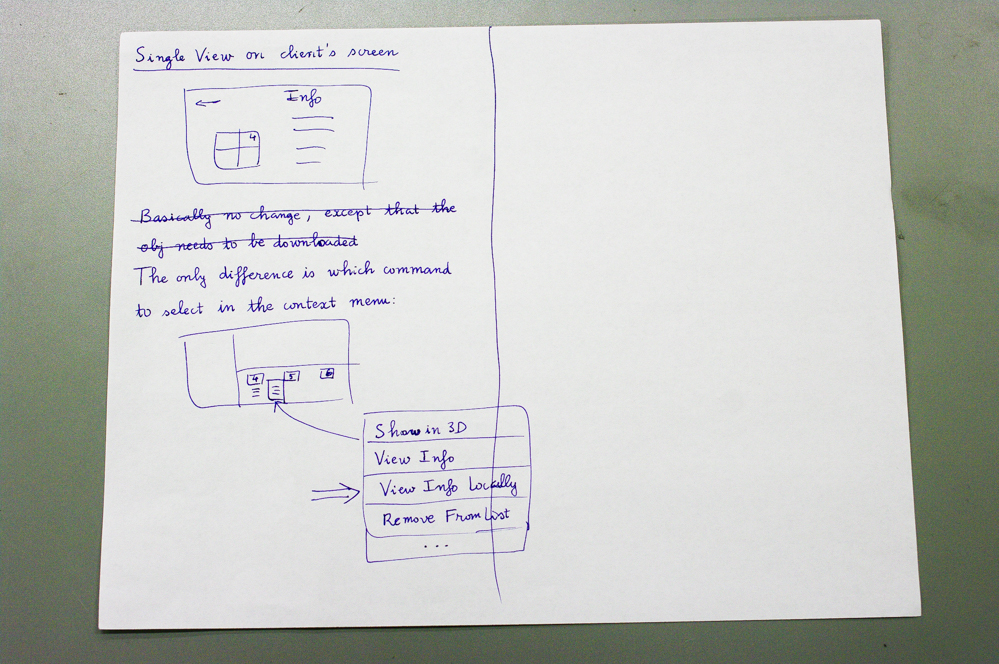 Single View on client's screen
Info
4
Basically no change, except that the
obj needs to be downloaded
The only difference is which command
to select in the context menu:
4 5 6
Show in 3D
View Info
View Info Locally
Remove From List
...